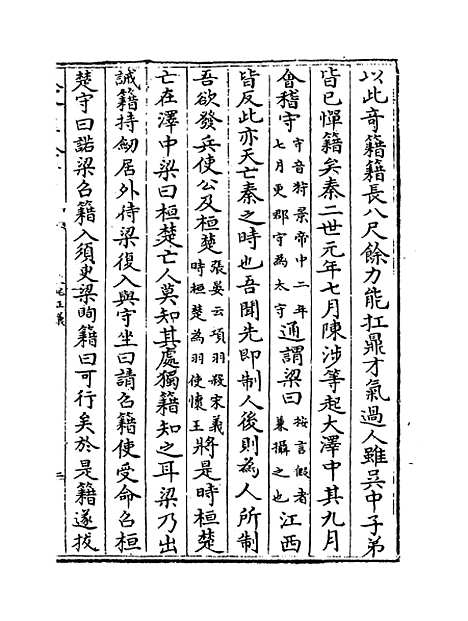 以此奇籍籍長八尺餘力能扛鼎才氣過人雖吳中子弟
皆已憚籍矣秦二世元年七月陳涉等起大澤中其九月
會稽守守音狩景帝中二年七月更郡守為太守通謂梁曰按言假者兼攝之也江西
皆反此亦天亡秦之時也吾聞先即制人後則為人所制
吾欲發兵使公及桓楚張晏云項羽殺宋義時桓楚為羽使懷王將是時桓楚
亡在澤中梁曰桓楚亡人莫知其處獨籍知之耳梁乃出
誡籍持劒居外待梁復入與守坐曰請召籍使受命召桓
楚守曰諾梁召籍入須臾梁眴籍曰可行矣於是籍遂拔